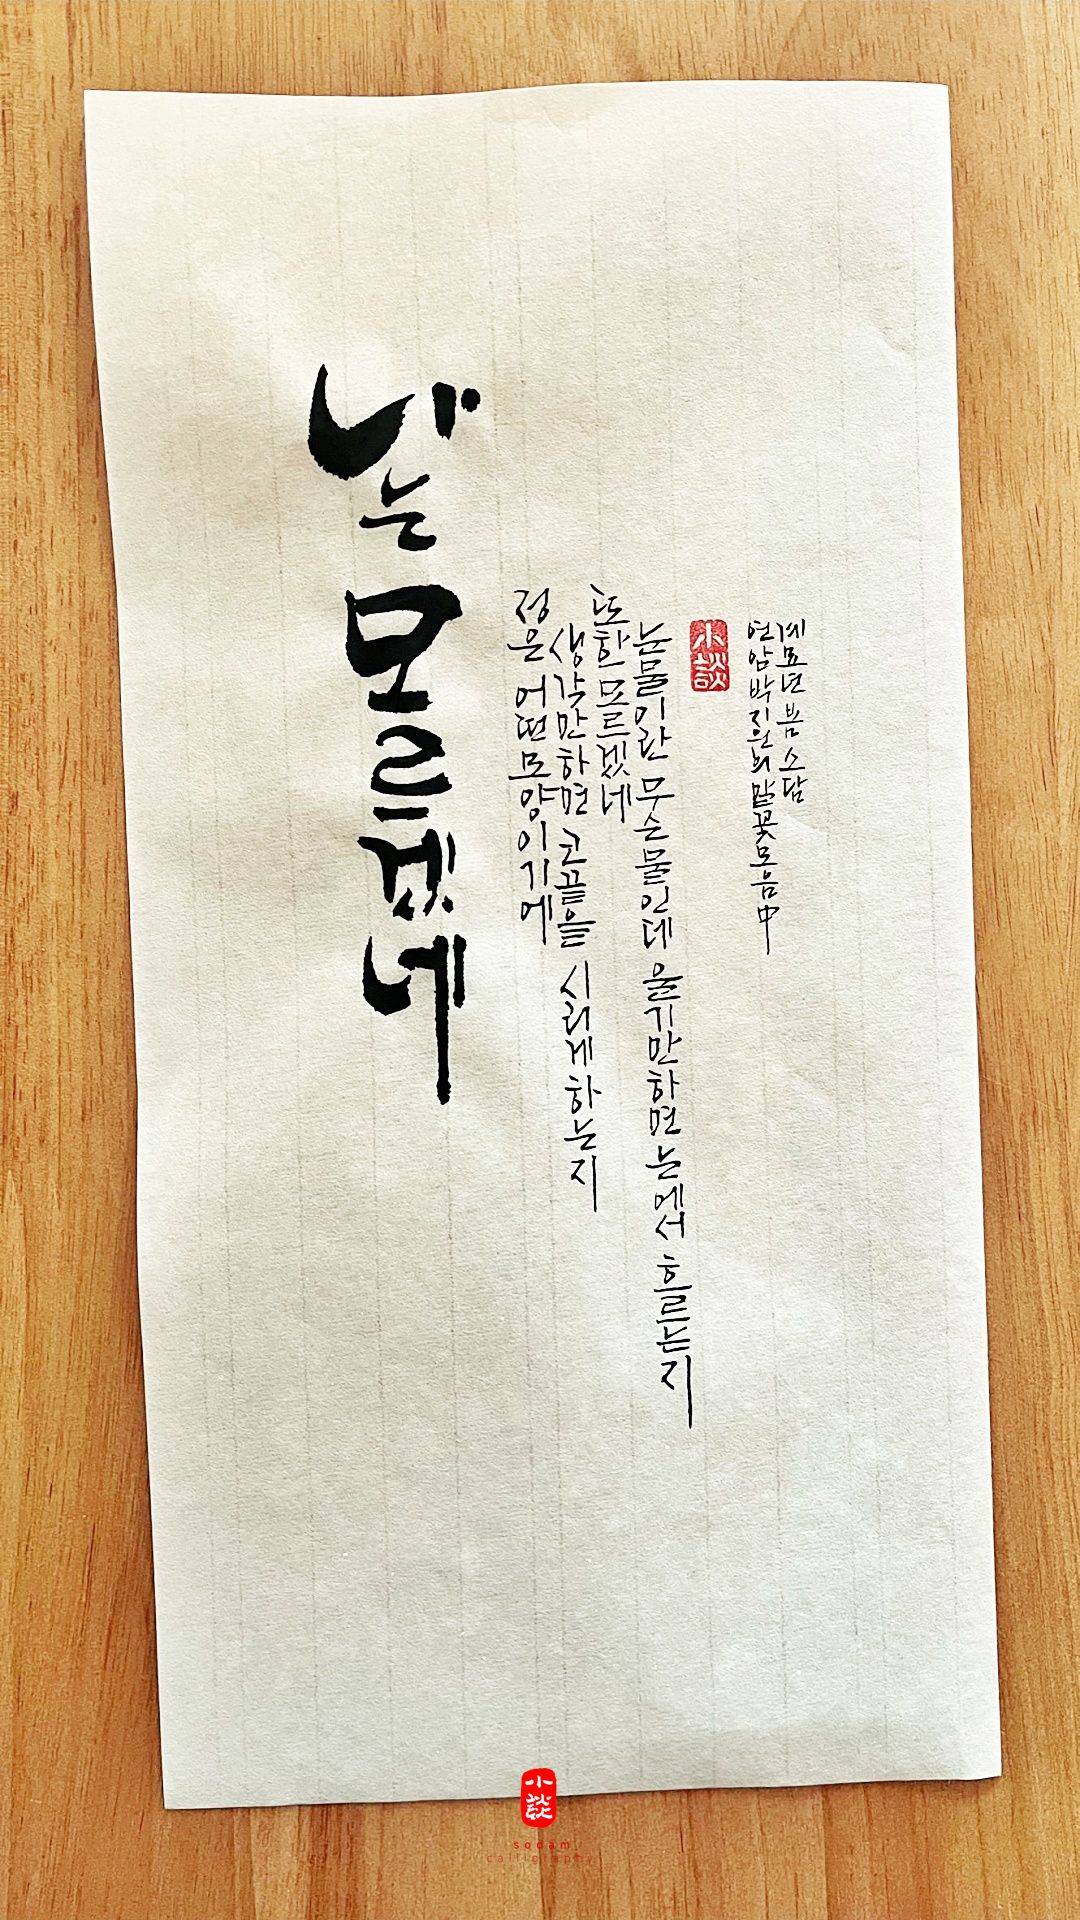 나는 모르겠네
정은 어떤 모양이기에
생각만하면 코끝을 시리게 하는지
또한 모르겠네
눈물이란 무슨 물인데 울기만하면 눈에서 흐르는지
小談
연암 박지원의 말꽃모음 中
계묘년 봄 소담
小談
sodam
calligraphy